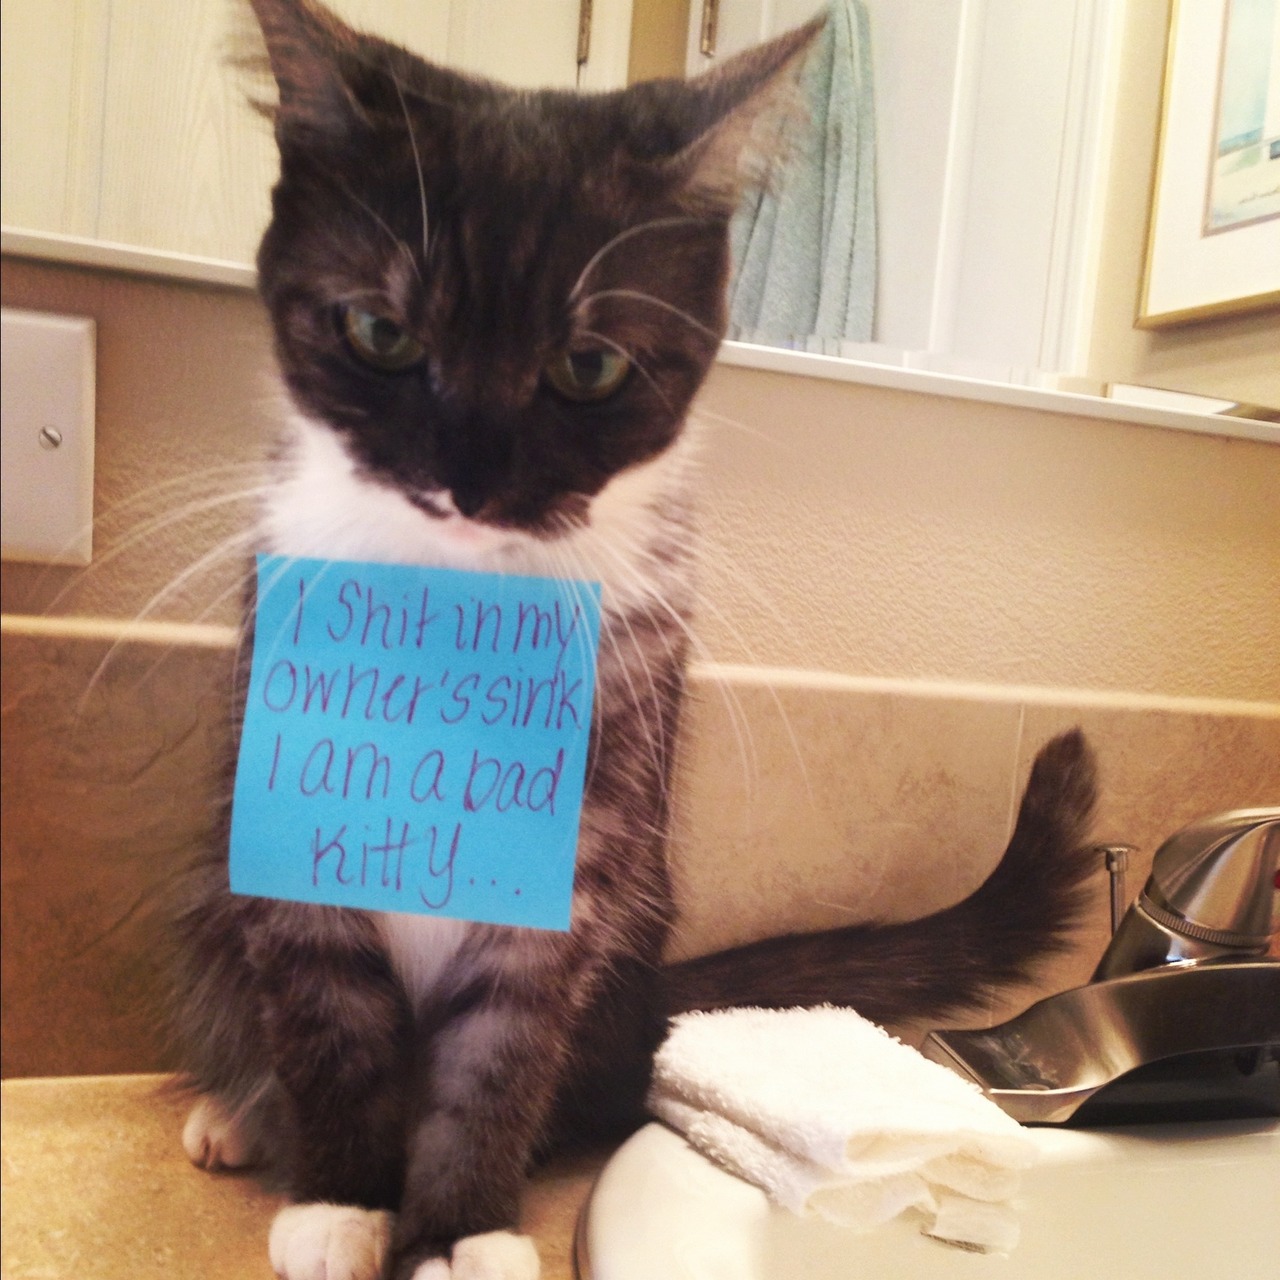 I Shit in my
owner's sink
I am a bad
kitty...